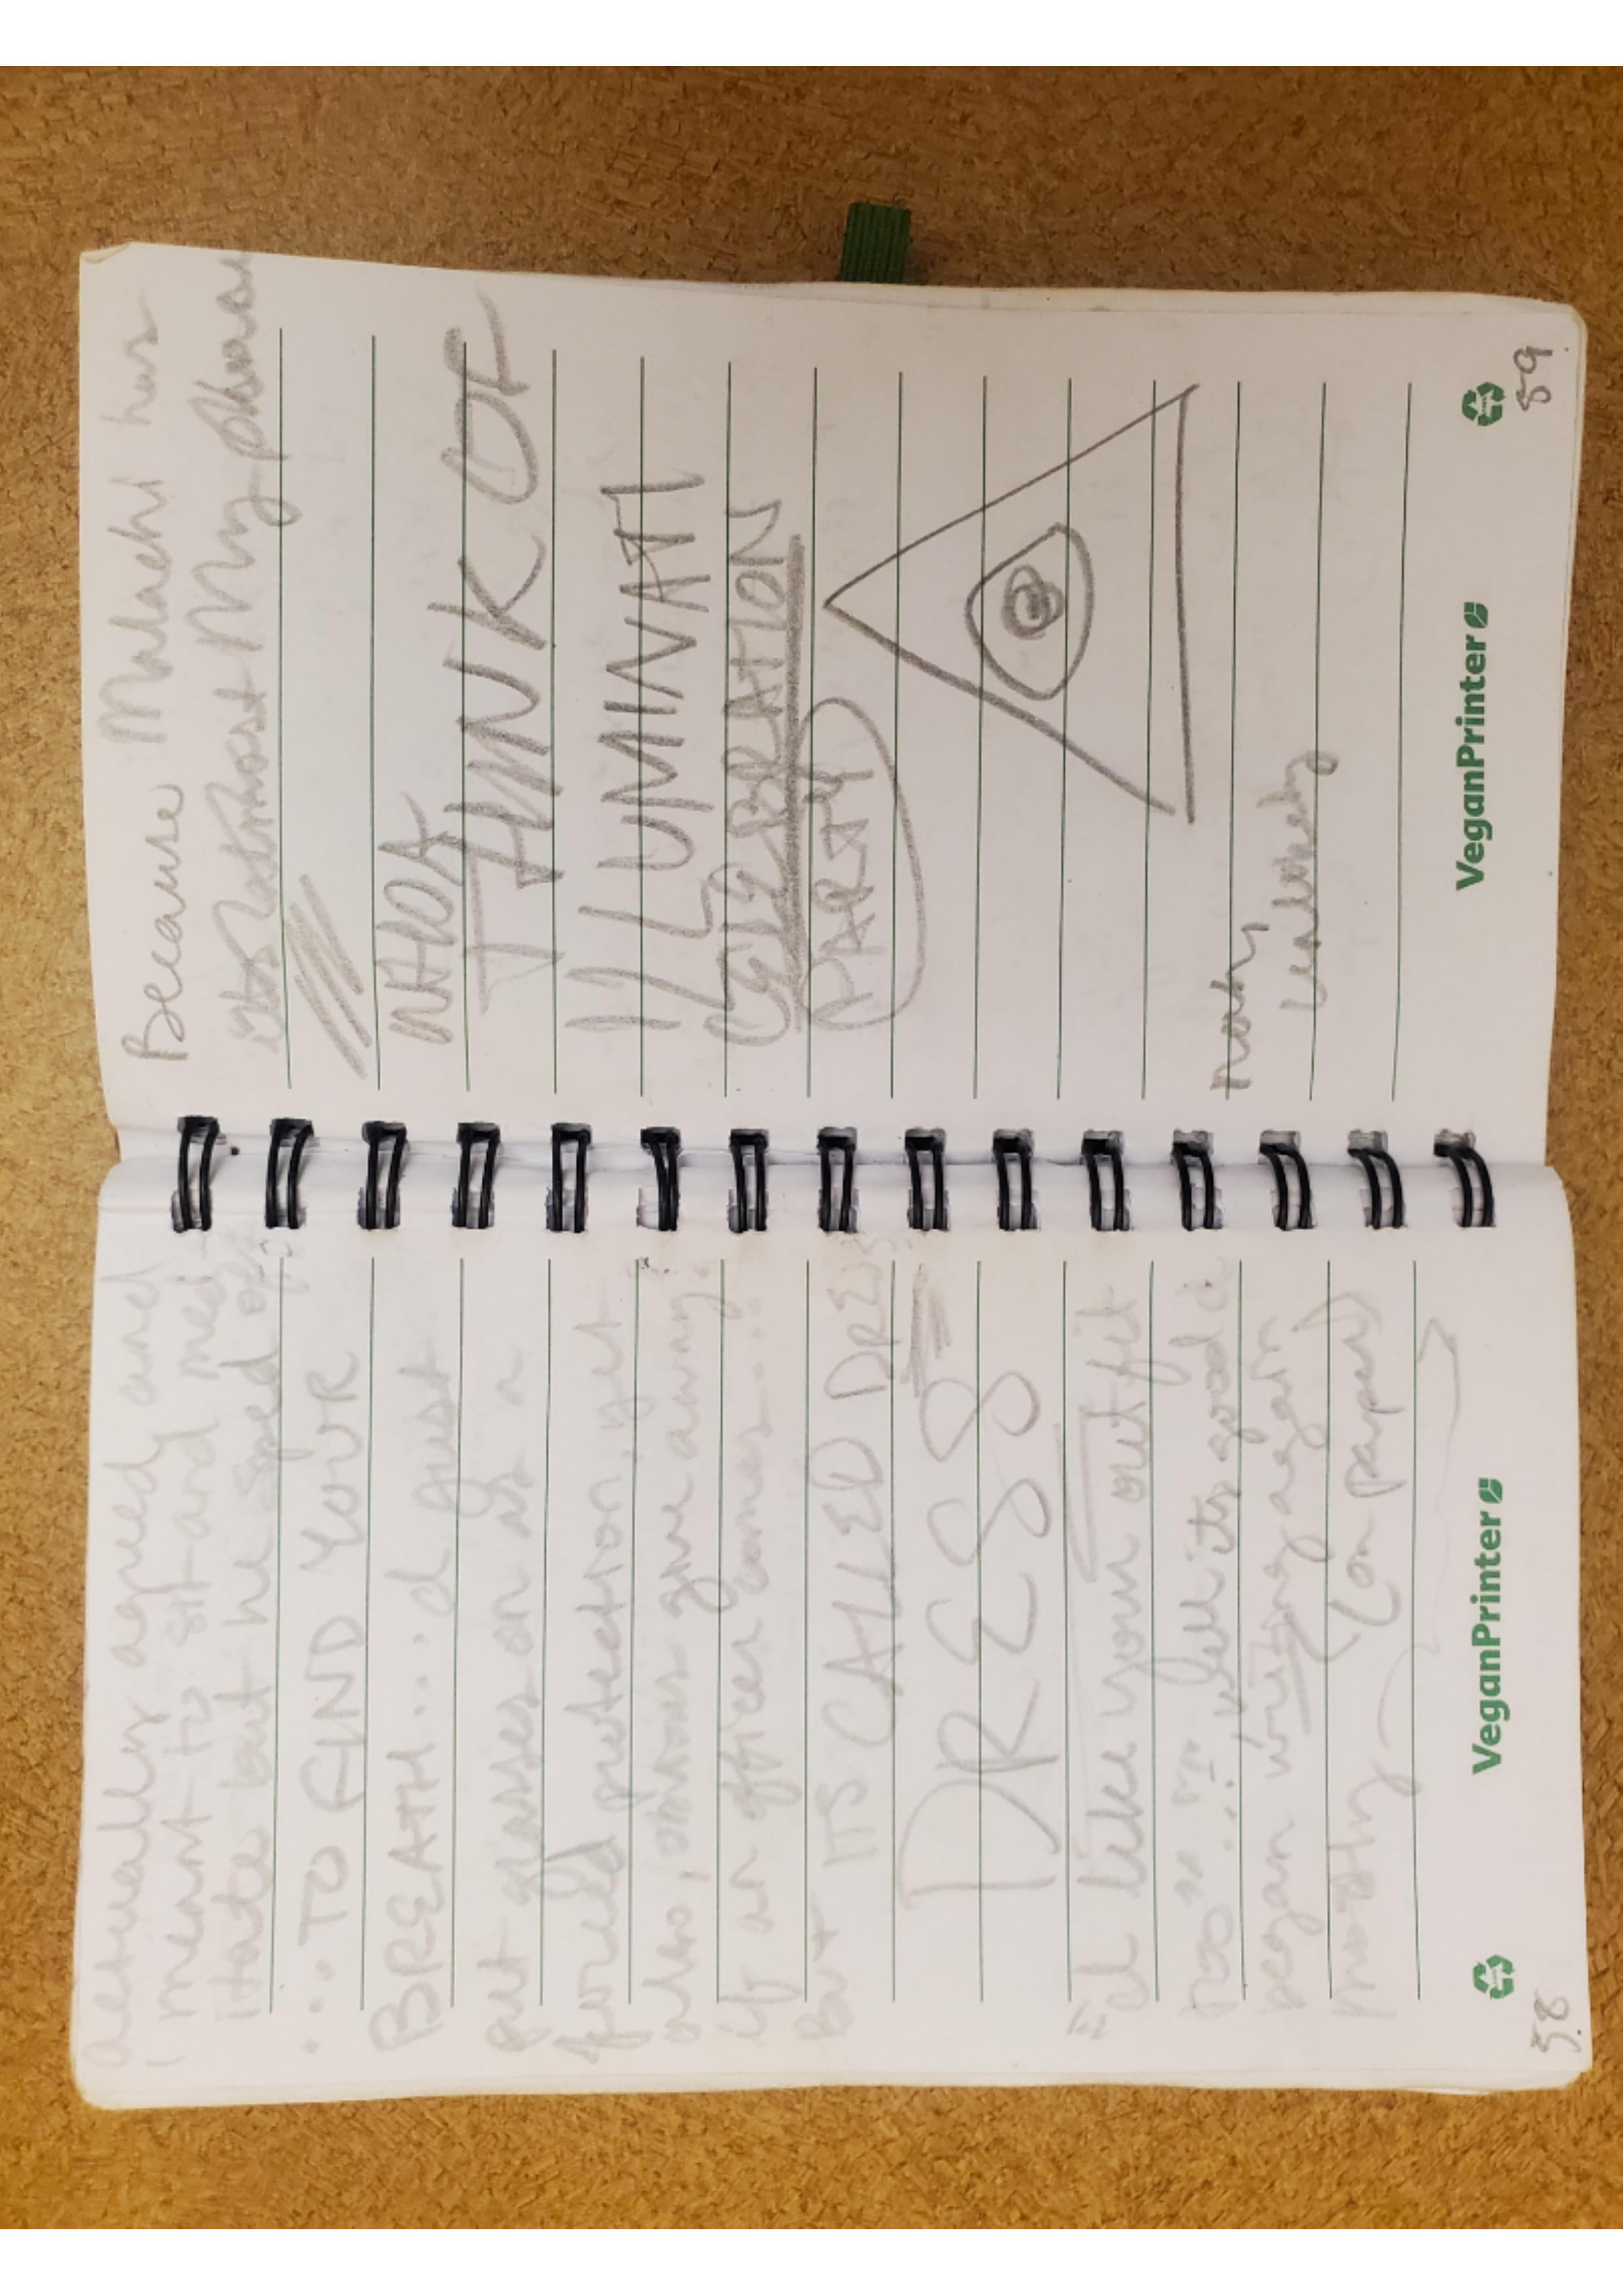 actually agreed and
I meant to sit and med-
itate but he sped off
... TO FIND YOUR
BREATH... I just
put glasses on as a
forced protection, yet
also, give away
if an officer comes...
But ITS CALLED
DRESS
"I like your outfit
too"... well its good i
began writing again
mostly (on paper)
VeganPrinter
58
Because Malachi has
almost My phone
WHOA
THINK OF
ILLUMINATI
CELEBRATION
PARTY
VeganPrinter
59